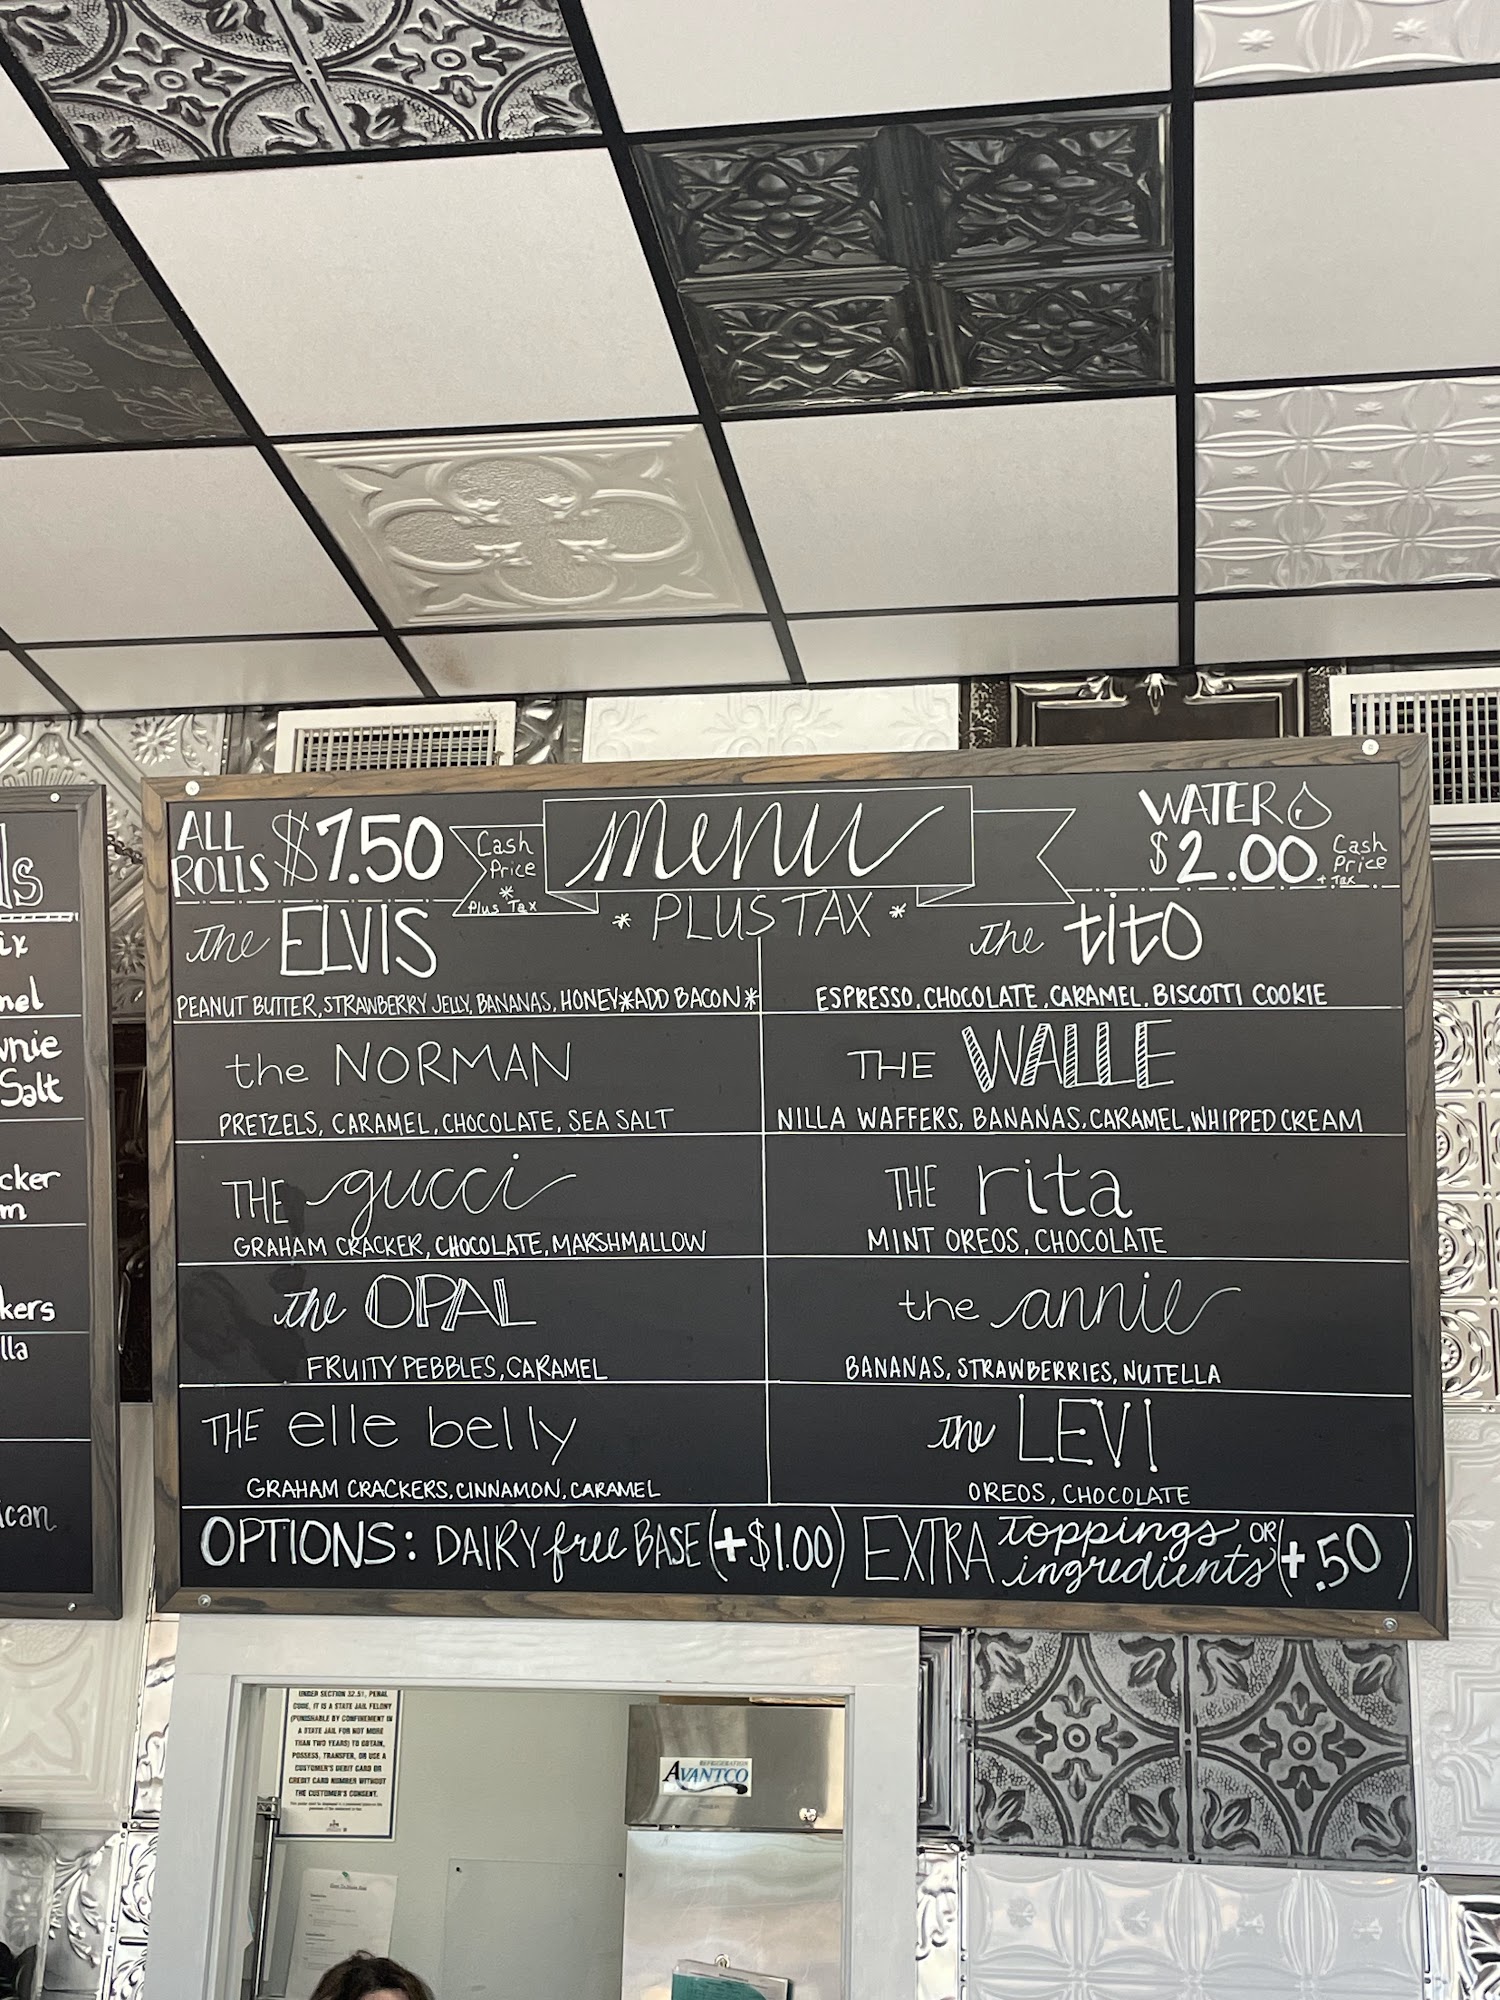 ls
ix
mel
wnie
Salt
cker
m
kers
lla
ican
ALL
ROLLS $7.50
Cash
Price
*
Plus Tax
menu
* PLUS TAX *
WATER
$2.00
Cash
Price
+ Tax
the ELVIS
PEANUT BUTTER, STRAWBERRY JELLY, BANANAS, HONEY *ADD BACON*
the tito
ESPRESSO, CHOCOLATE, CARAMEL, BISCOTTI COOKIE
the NORMAN
PRETZELS, CARAMEL, CHOCOLATE, SEA SALT
THE WALLE
NILLA WAFFERS, BANANAS, CARAMEL, WHIPPED CREAM
THE gucci
GRAHAM CRACKER, CHOCOLATE, MARSHMALLOW
THE rita
MINT OREOS, CHOCOLATE
the OPAL
FRUITY PEBBLES, CARAMEL
the annie
BANANAS, STRAWBERRIES, NUTELLA
THE elle belly
GRAHAM CRACKERS, CINNAMON, CARAMEL
the LEVI
OREOS, CHOCOLATE
OPTIONS: DAIRY free BASE (+$1.00) EXTRA toppings OR ingredients (+.50)
UNDER SECTION 32.51, PENAL
CODE, IT IS A STATE JAIL FELONY
(PUNISHABLE BY CONFINEMENT IN
A STATE JAIL FOR NOT MORE
THAN TWO YEARS) TO OBTAIN,
POSSESS, TRANSFER, OR USE A
CUSTOMER'S DEBIT CARD OR
CREDIT CARD NUMBER WITHOUT
THE CUSTOMER'S CONSENT.
REFRIGERATION
AVANTCO